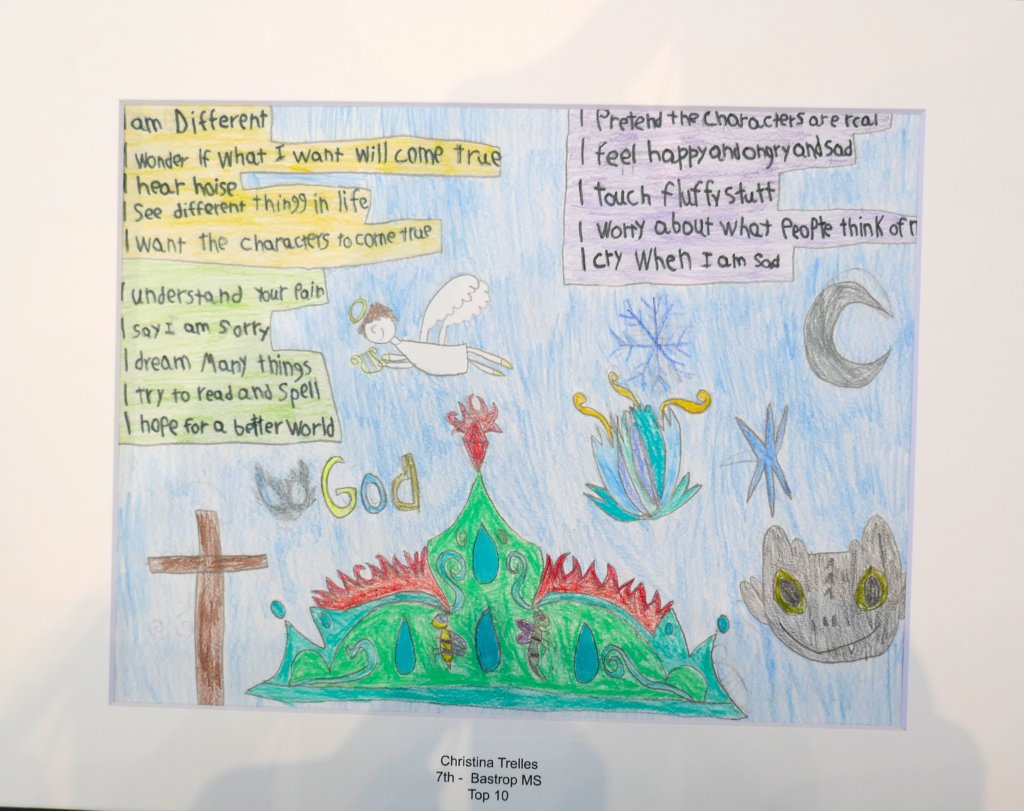 I am Different
I wonder If what I want will come true
I hear noise
I See different thingg in life
I want the characters to come true
I understand Your Pain
I say I am Sorry
I dream Many things
I try to read and Spell
I hope for a better World
I Pretend the Characters are real
I feel happy and angry and sad
I touch fluffy stuff
I worry about what People think of
I cry When I am Sad
God
Christina Trelles
7th - Bastrop MS
Top 10